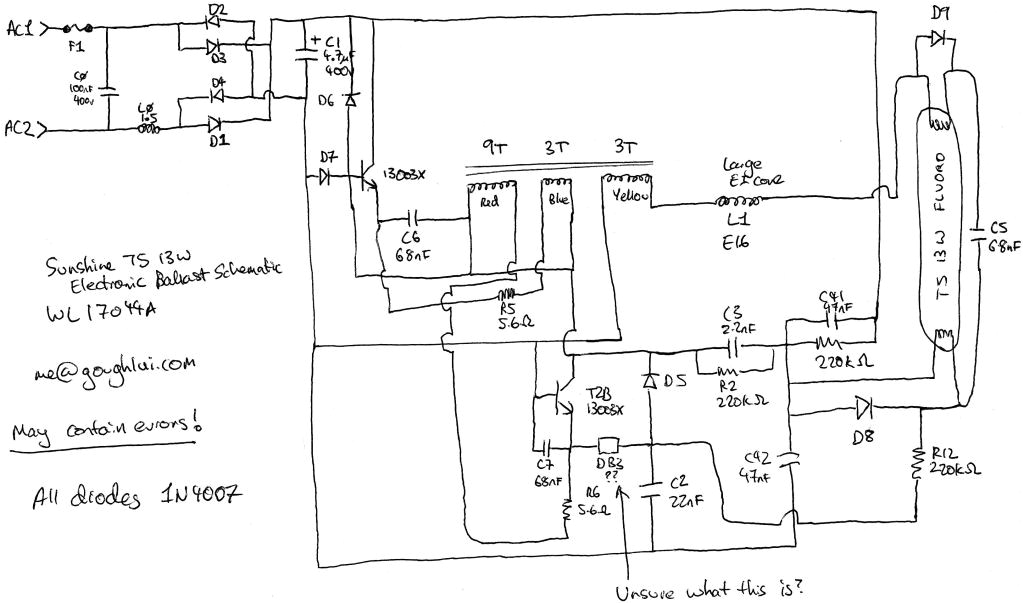 AC1
F1
D2
D3
C0
100nF
400v
L0
D4
D1
AC2
+ C1
4.7µF
400v
D6
D7
13003X
C6
68nF
9T 3T 3T
Red Blue Yellow
Large
EE Core
L1
E16
D9
T5 13W FLUORO
C5
68nF
R5
5.6Ω
C3
2.2nF
C41
47nF
220kΩ
R2
220kΩ
D5
D8
T2B
13003X
C7
68nF
DB3
??
R6
5.6Ω
C2
22nF
C42
47nF
R12
220kΩ
Unsure what this is?
Sunshine T5 13W
Electronic Ballast Schematic
WL17044A
me@goughlui.com
May contain errors!
All diodes 1N4007